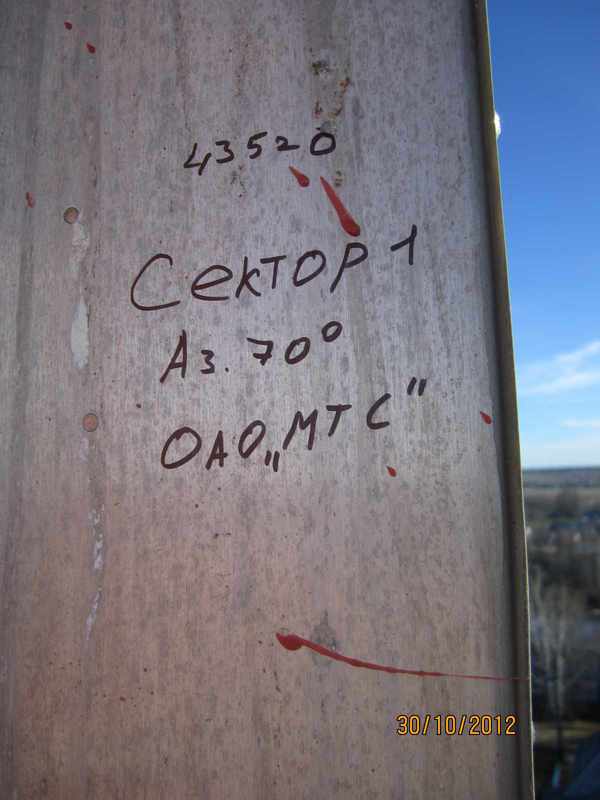 43520
Сектор 1
Аз. 70°
ОАО „МТС"
30/10/2012